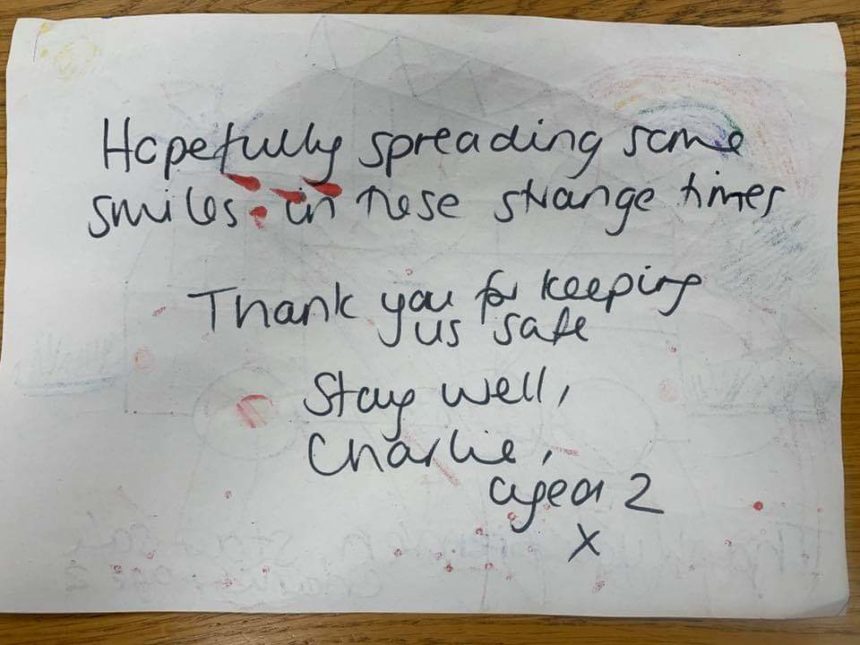 Hopefully spreading some
smiles in these strange times
Thank you for keeping
us safe
Stay well,
Charlie,
aged 2
x